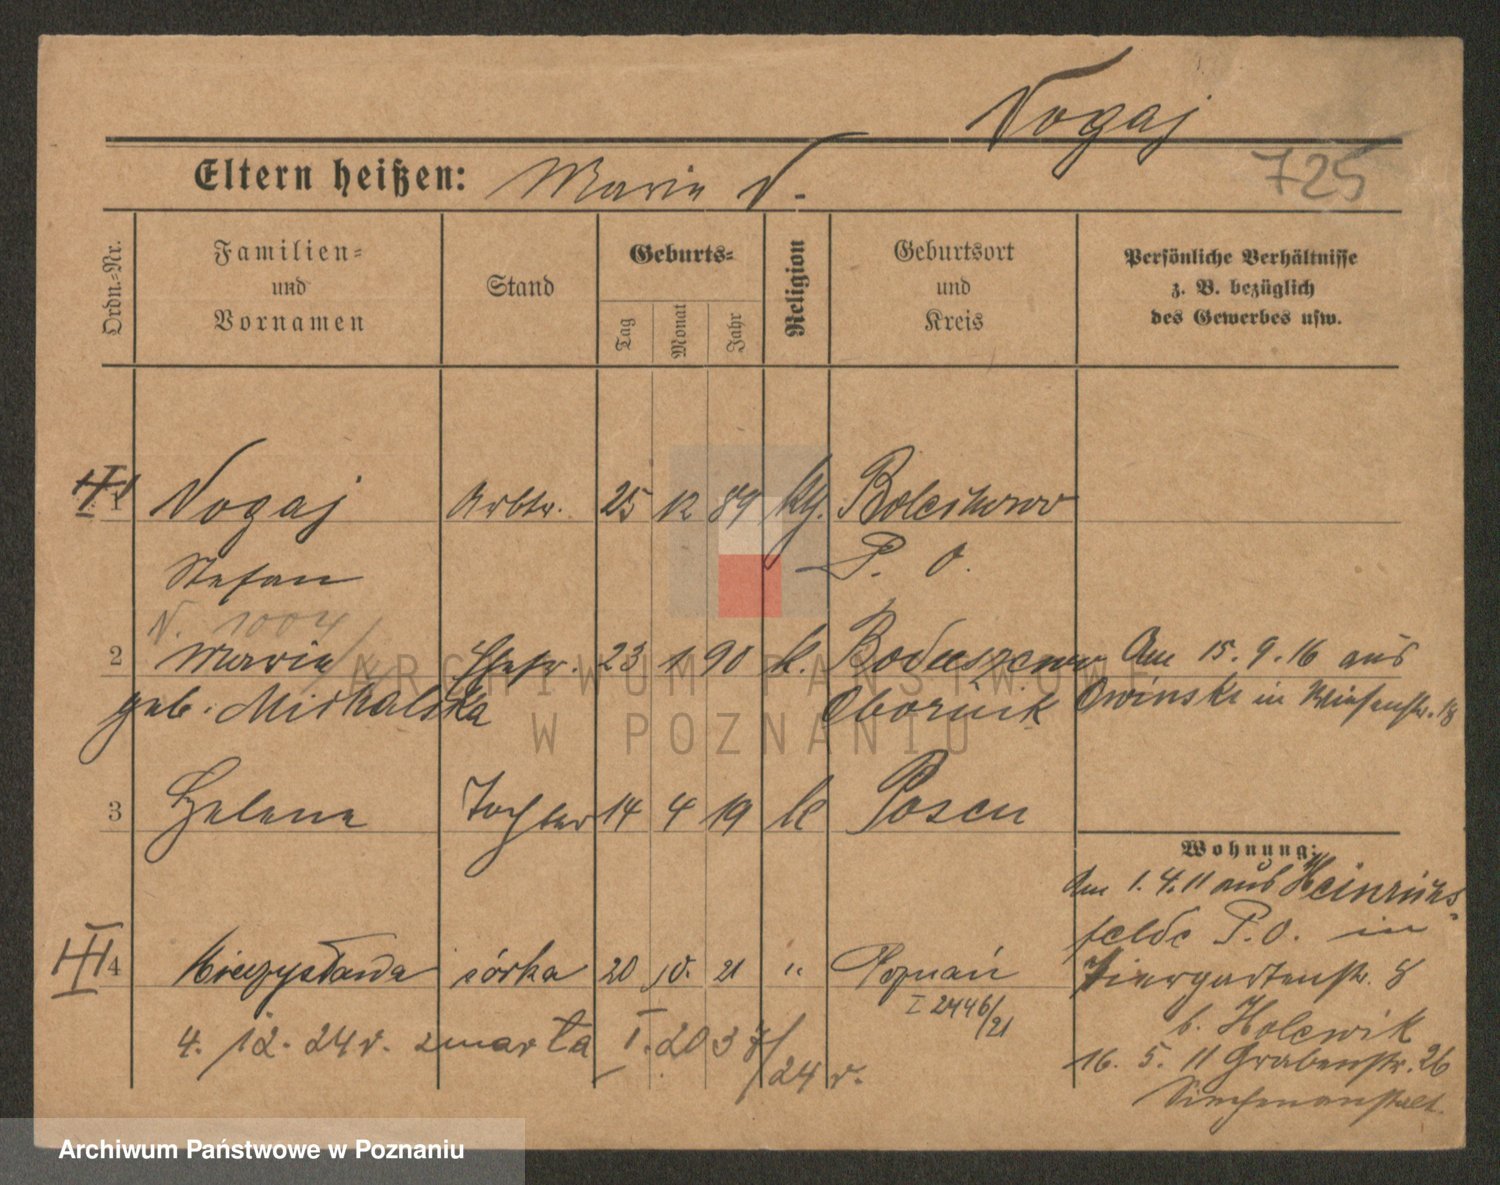 Nogaj
Eltern heißen: Maria N.
725
Ordn.=Nr.
Familien=
und
Vornamen
Stand
Geburts=
Tag
Monat
Jahr
Religion
Geburtsort
und
Kreis
Persönliche Verhältnisse
z. B. bezüglich
des Gewerbes usw.
1 Nogaj Arbtr. 25 12 89 kth.
Stefan P. O.
N. 1004/
2 Maria Ehefr. 23 1 90 k. Am 15.9.16 aus
geb. Michalska Obornik Owinsk in Wiesenstr. 18
3 Helene Tochter 14 4 19 k Posen
Wohnung:
Am 1.4.11 aus Heinrichs
felde P.O. in
III 4 Mieczysława córka 20 10. 21 " Poznań
Tiergartenstr. 8
I 2446/21
b. Holewik
4. 12. 24 r. zmarła I. 2037/24 r.
16. 5. 11 Grabenstr. 26
ARCHIWUM PAŃSTWOWE
W POZNANIU
Archiwum Państwowe w Poznaniu